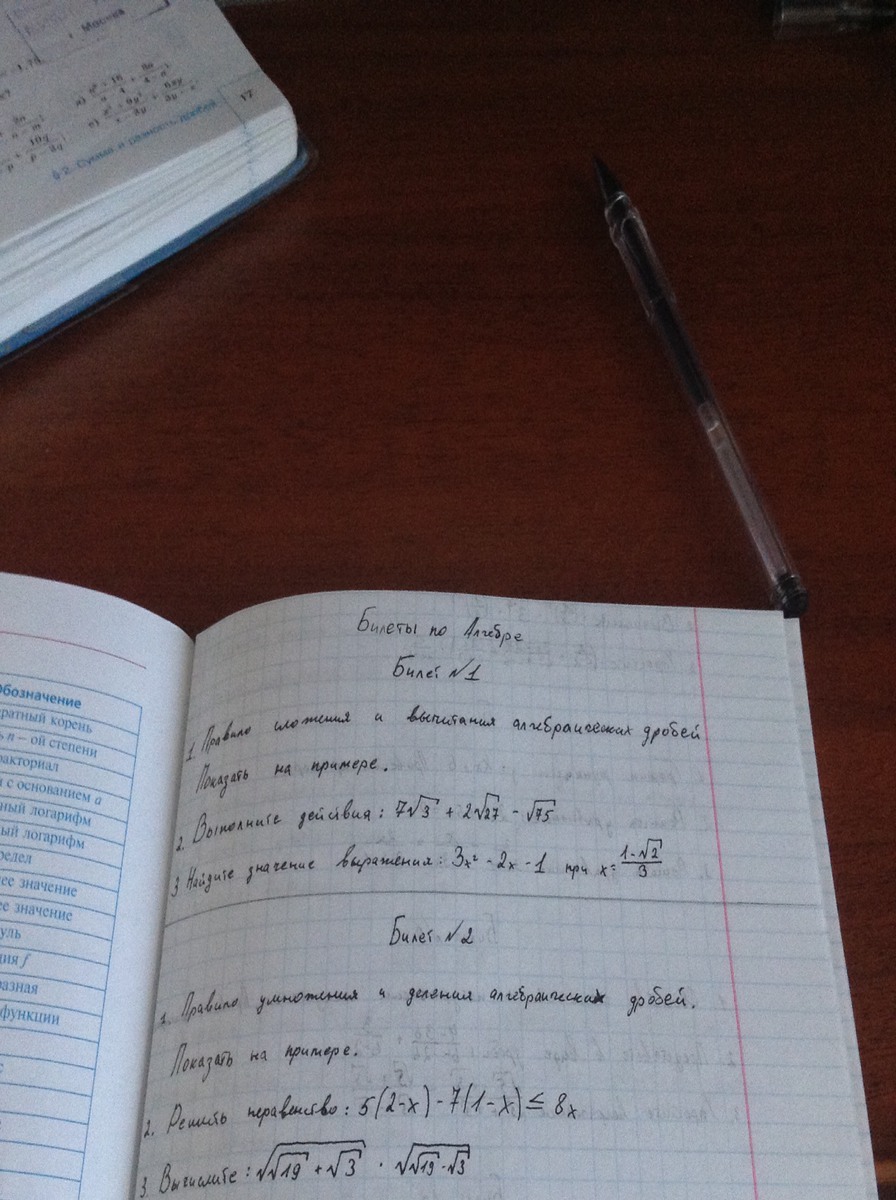 Москва
17
§ 2. Сумма и разность дробей
Обозначение
n – ой степени
с основанием a
логарифм
логарифм
значение
значение
f
функции
Билеты по Алгебре
Билет №1
1. Правило сложения и вычитания алгебраических дробей
Показать на примере.
2. Выполните действия: 7√3 + 2√27 - √75
3 Найдите значение выражения: 3x² - 2x - 1 при x = (1-√2)/3
Билет №2
1. Правило умножения и деления алгебраических дробей.
Показать на примере.
2. Решить неравенство: 5(2-x) - 7(1-x) ≤ 8x
3. Вычислите: √(√19 + √3) · √(√19 - √3)